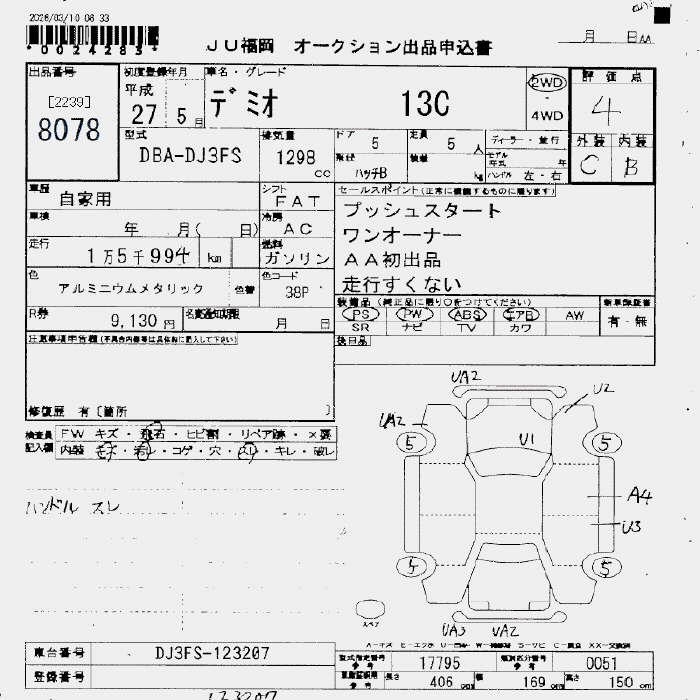 2026/03/10 06 33
*0024283*
JU福岡 オークション出品申込書
月 日
出品番号
[2239]
8078
初度登録年月
平成
27 5 日
車名・グレード
デミオ 13C
2WD
4WD
評価点
4
外装 内装
C B
型式
DBA-DJ3FS
排気量
1298
cc
ドア 5
定員 5 人
ディーラー・並行
ハッチB
kg
ハンドル 左・右
車歴
自家用
シフト
FAT
車検
年 月( 日)
冷房
AC
走行
1万5千994 km
燃料
ガソリン
色
アルミニウムメタリック
色替
色コード
38P
R券
9,130 円
名変通知期限
月 日
セールスポイント(正常に機能するものに限ります)
プッシュスタート
ワンオーナー
AA初出品
走行すくない
装備品 (純正品に限り○をつけてください)
新車保証書
PS PW ABS エアB AW
SR ナビ TV カワ
有・無
後日品
注意事項申告欄(不具合内容等は具体的に記入して下さい)
修復歴 有[箇所 ]
検査員
記入欄
FW キズ・飛石・ヒビ割・リペア跡・×要
内装 キズ・汚レ・コゲ・穴・スレ・キレ・破レ
ハンドル スレ
UA2
U2
UA2
U1
5
5
A4
U3
5
5
スペア
UA3 UA2
車台番号
DJ3FS-123207
登録番号
123207
型式指定番号
参考
17795
類別区分番号
参考
0051
参考
長さ 406 cm
幅 169 cm
高さ 150 cm